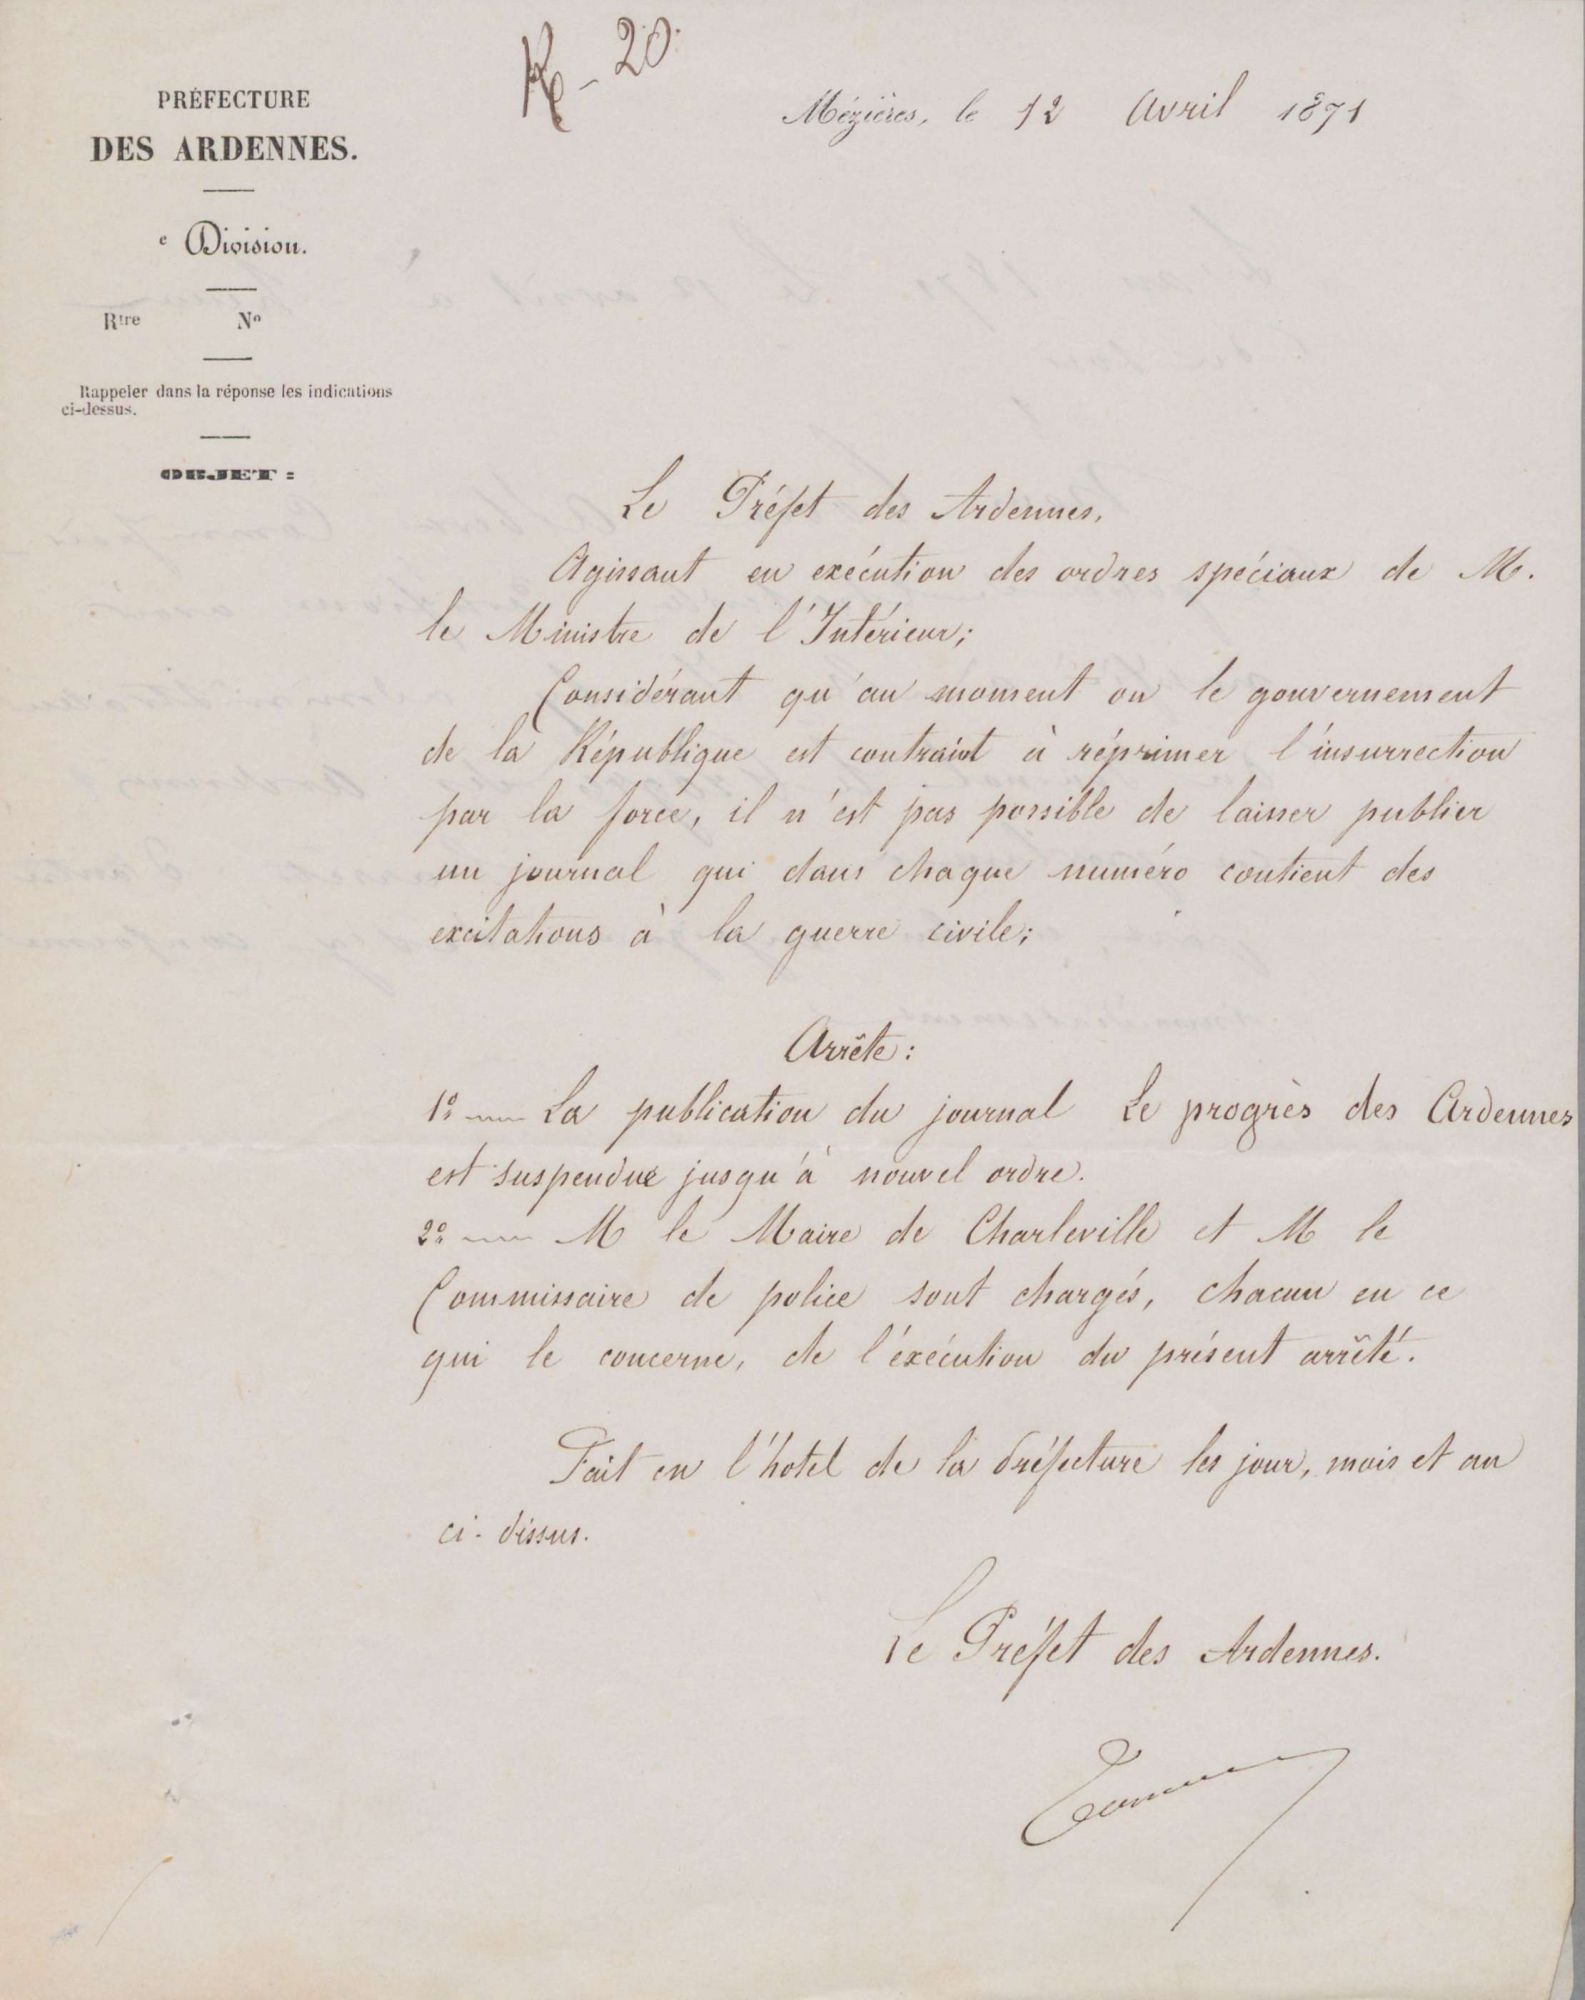 R - 20.
PRÉFECTURE
DES ARDENNES.
e Division.
Rtre No
Rappeler dans la réponse les indications
ci-dessus.
OBJET :
Mézières, le 12 Avril 1871
Le Préfet des Ardennes,
Agissant en exécution des ordres spéciaux de M.
le Ministre de l'Intérieur;
Considérant qu'au moment ou le gouvernement
de la République est contraint à réprimer l'insurrection
par la force, il n'est pas possible de laisser publier
un journal qui dans chaque numéro contient des
excitations à la guerre civile;
Arrête:
1o La publication du journal Le progrès des Ardennes
est suspendue jusqu'à nouvel ordre.
2o M le Maire de Charleville et M le
Commissaire de police sont chargés, chacun en ce
qui le concerne, de l'éxécution du présent arrêté.
Fait en l'hotel de la Préfecture les jour, mois et an
ci-dessus.
Le Préfet des Ardennes.